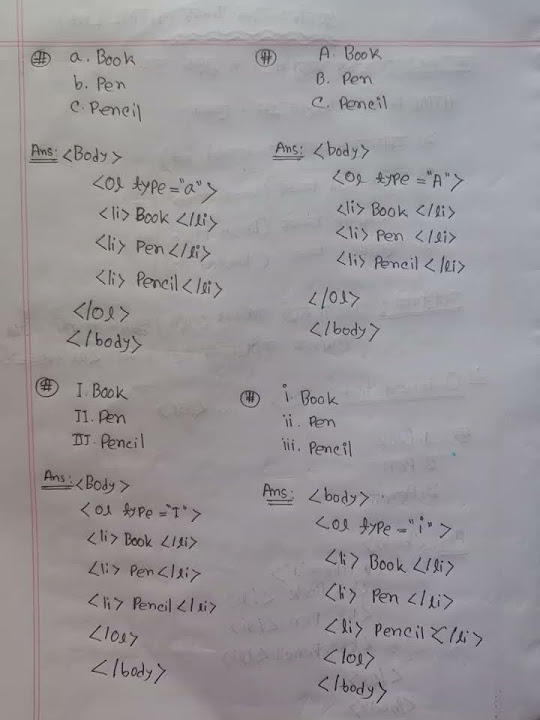 # a. Book
b. Pen
c. Pencil
Ans: <Body>
<ol type="a">
<li> Book </li>
<li> Pen </li>
<li> Pencil </li>
</ol>
</body>
# A. Book
B. Pen
C. Pencil
Ans: <body>
<ol type="A">
<li> Book </li>
<li> Pen </li>
<li> Pencil </li>
</ol>
</body>
# I. Book
II. Pen
III. Pencil
Ans: <Body>
<ol type="I">
<li> Book </li>
<li> Pen </li>
<li> Pencil </li>
</ol>
</body>
# i. Book
ii. Pen
iii. Pencil
Ans: <body>
<ol type="i">
<li> Book </li>
<li> Pen </li>
<li> Pencil </li>
</ol>
</body>